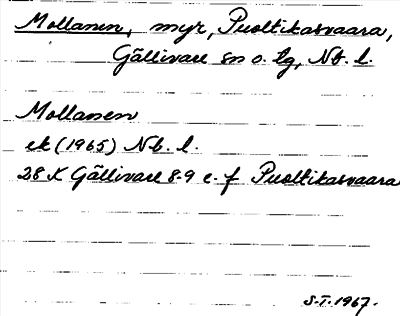 Mollanen, myr, Puoltikasvaara,
Gällivare sn o. tg, Nb. l.
Mollanen
ek (1965) Nb. l.
28 K Gällivare 8-9 e-f Puoltikasvaara
S.T. 1967.